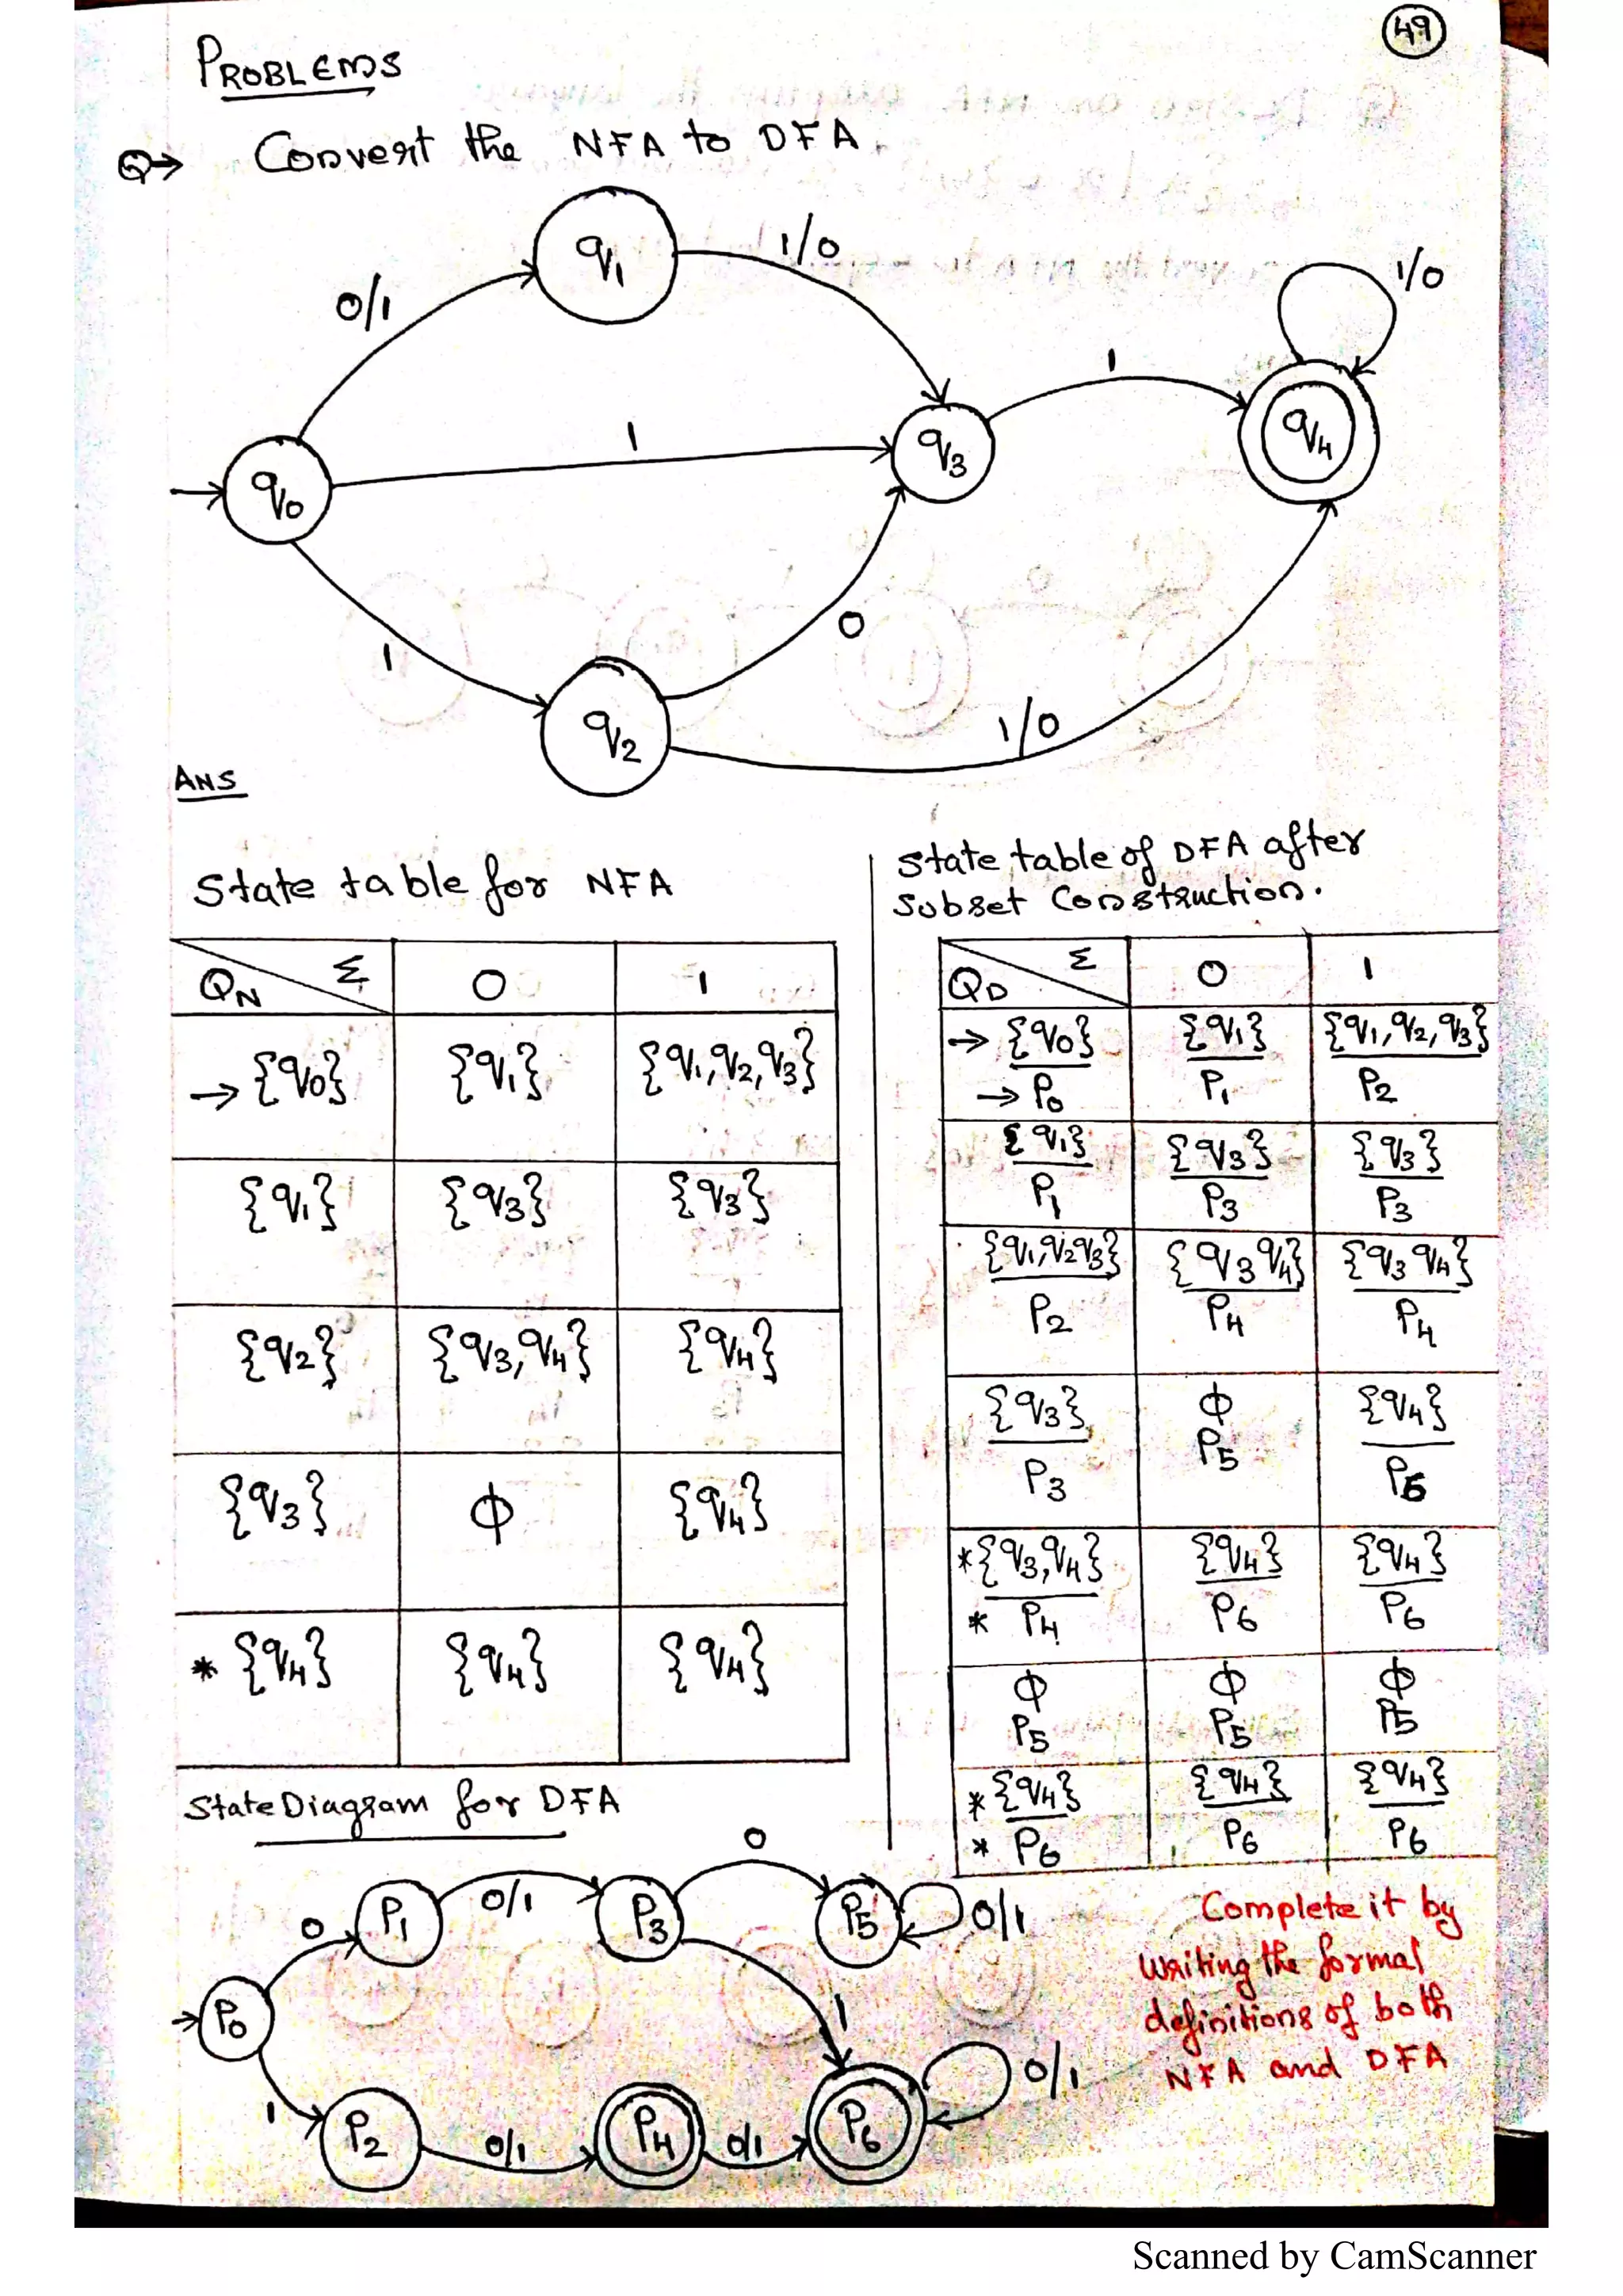 49
PROBLEMS
Q→ Convert the NFA to DFA.
q1
1/0
0/1
1/0
1
q0
1
q3
q4
1
0
q2
1/0
ANS
State table for NFA
QN Σ 0 1
→ {q0} {q1} {q1, q2, q3}
{q1} {q3} {q3}
{q2} {q3, q4} {q4}
{q3} ϕ {q4}
* {q4} {q4} {q4}
State table of DFA after
Subset Construction.
QD Σ 0 1
→ {q0} {q1} {q1, q2, q3}
→ P0 P1 P2
{q1} {q3} {q3}
P1 P3 P3
{q1, q2 q3} {q3 q4} {q3 q4}
P2 P4 P4
{q3} ϕ {q4}
P3 P5 P6
* {q3, q4} {q4} {q4}
* P4 P6 P6
ϕ ϕ ϕ
P5 P5 P5
* {q4} {q4} {q4}
* P6 P6 P6
State Diagram for DFA
0
P1
0/1
P3
P5
0/1
0
P0
1
0/1
1
P2
0/1
P4
0/1
P6
Complete it by
writing the formal
definitions of both
NFA and DFA
Scanned by CamScanner